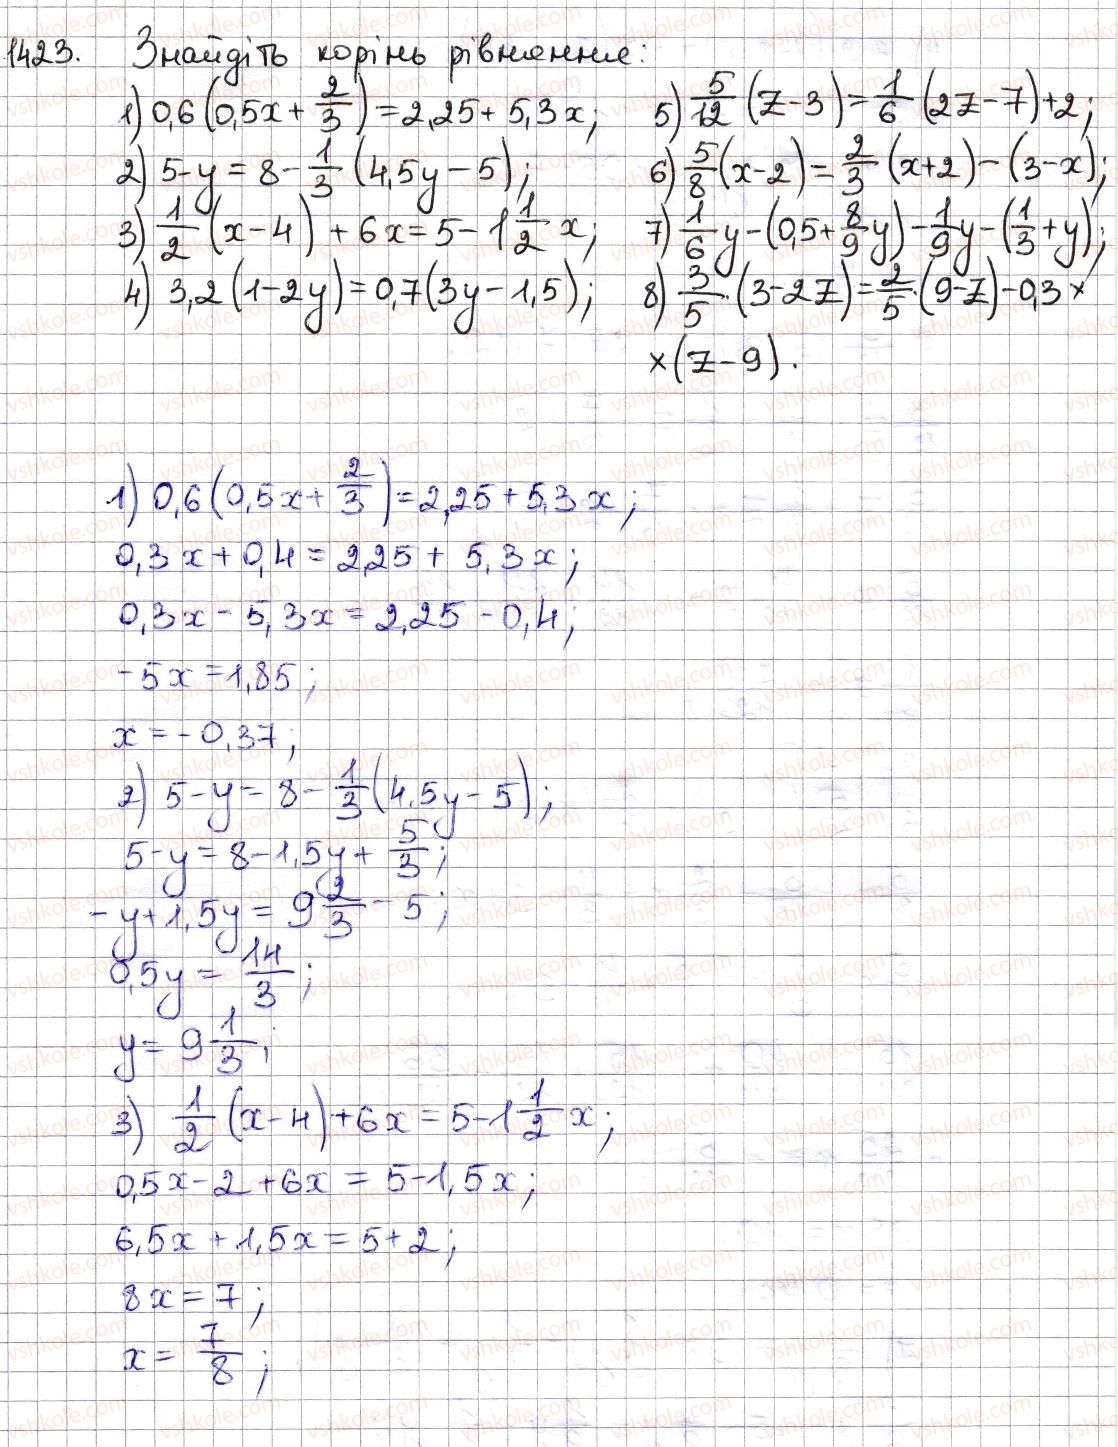 1423. Знайдіть корінь рівняння:
1) 0,6(0,5x + 2/3) = 2,25 + 5,3x;
2) 5 - y = 8 - 1/3 (4,5y - 5);
3) 1/2 (x - 4) + 6x = 5 - 1 1/2 x;
4) 3,2(1 - 2y) = 0,7(3y - 1,5);
5) 5/12 (z - 3) = 1/6 (2z - 7) + 2;
6) 5/8 (x - 2) = 2/3 (x + 2) - (3 - x);
7) 1/6 y - (0,5 + 8/9 y) - 1/9 y - (1/3 + y);
8) 3/5 · (3 - 2z) = 2/5 · (9 - z) - 0,3 ×
× (z - 9).
1) 0,6(0,5x + 2/3) = 2,25 + 5,3x;
0,3x + 0,4 = 2,25 + 5,3x;
0,3x - 5,3x = 2,25 - 0,4;
-5x = 1,85;
x = -0,37;
2) 5 - y = 8 - 1/3 (4,5y - 5);
5 - y = 8 - 1,5y + 5/3;
-y + 1,5y = 9 2/3 - 5;
0,5y = 14/3;
y = 9 1/3;
3) 1/2 (x - 4) + 6x = 5 - 1 1/2 x;
0,5x - 2 + 6x = 5 - 1,5x;
6,5x + 1,5x = 5 + 2;
8x = 7;
x = 7/8;
vshkole.com